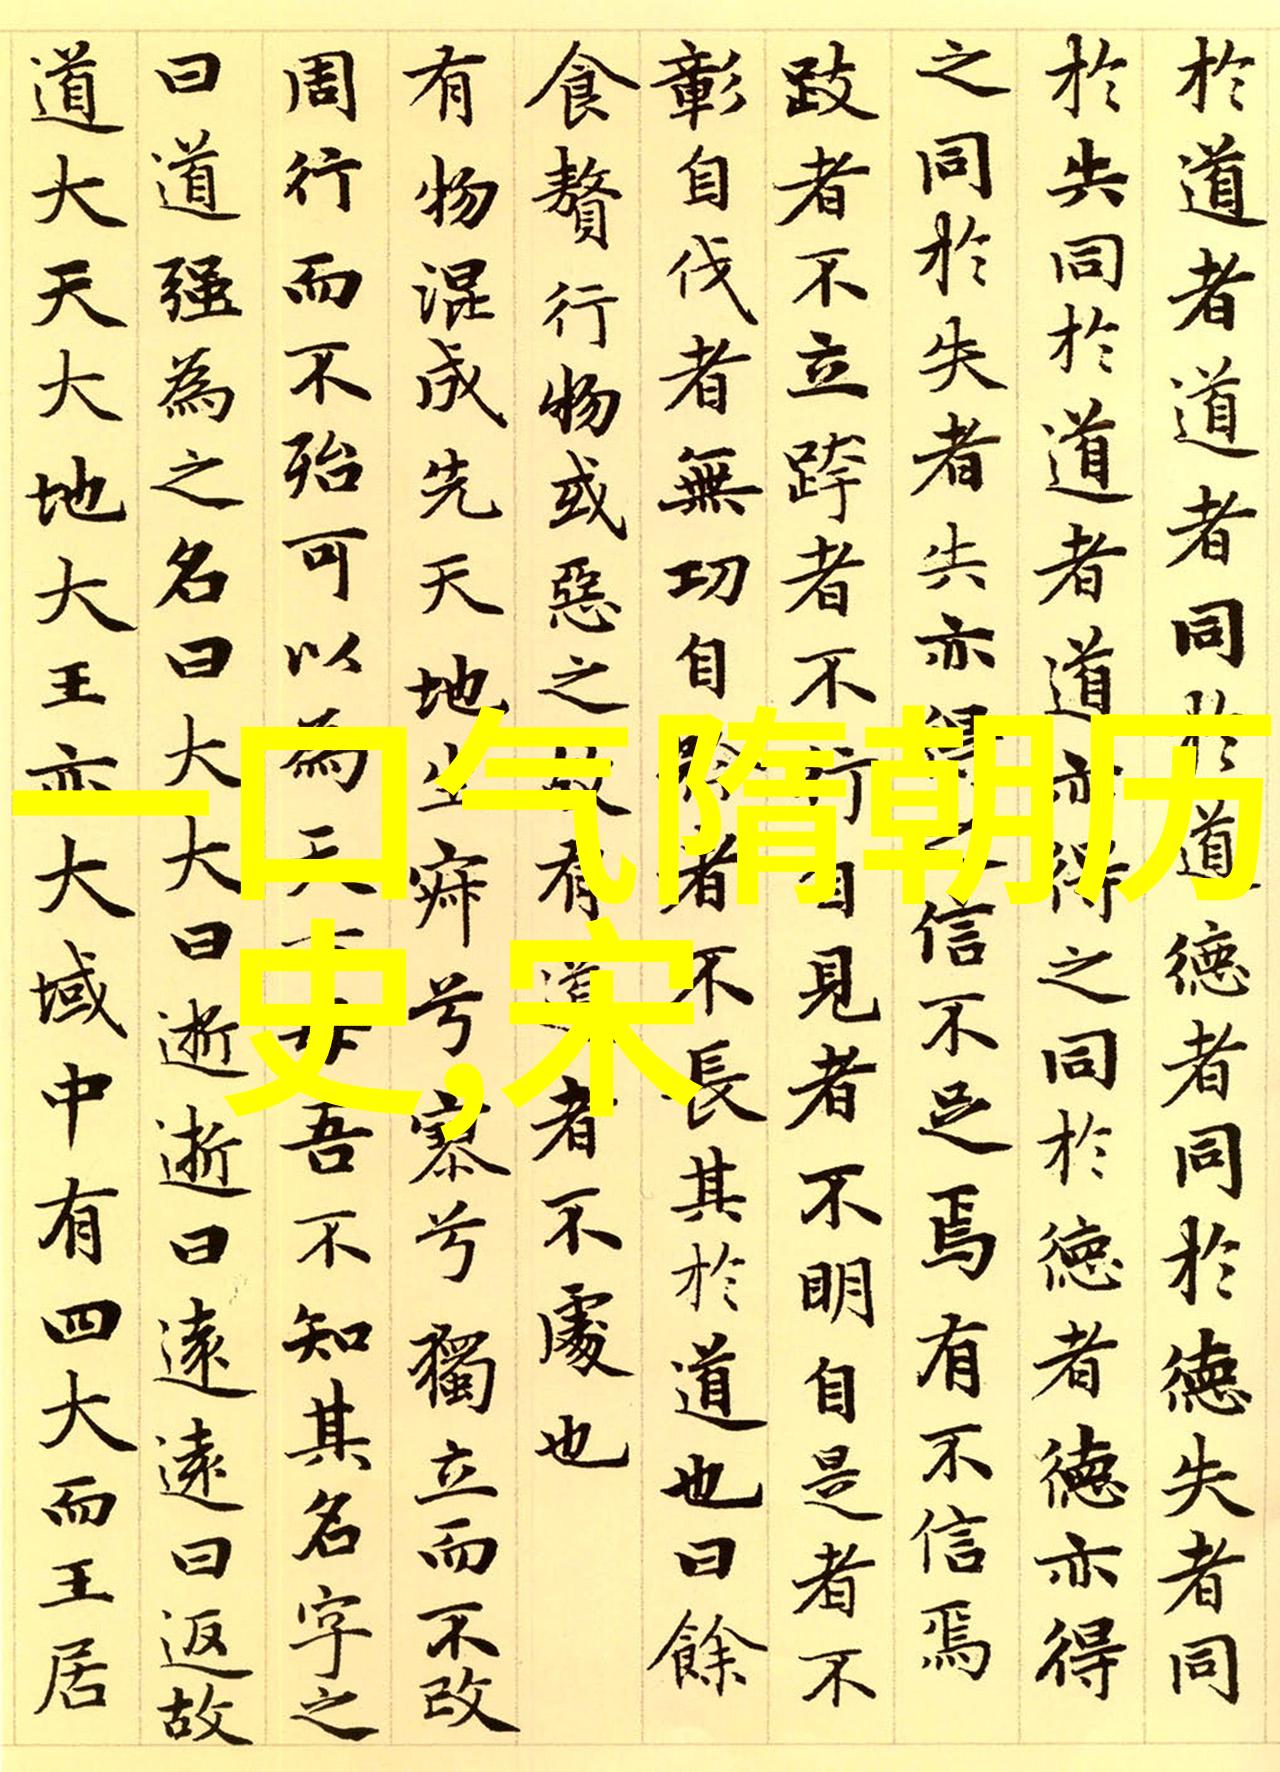 於道者道者同於道德者同於德失者同
於失同於道者道亦得之同於德者德亦得
之同於失者失亦得之信不足焉有不信焉
跂者不立跨者不行自見者不明自是者不
彰自伐者無功自矜者不長其於道也曰餘
食贅行物或惡之故有道者不處也
有物混成先天地生寂兮寥兮獨立而不改
周行而不殆可以為天下母吾不知其名字之
曰道强為之名曰大大曰逝逝曰遠遠曰返故
道大天大地大王亦大域中有四大而王居
一口气隋朝历
史,宋